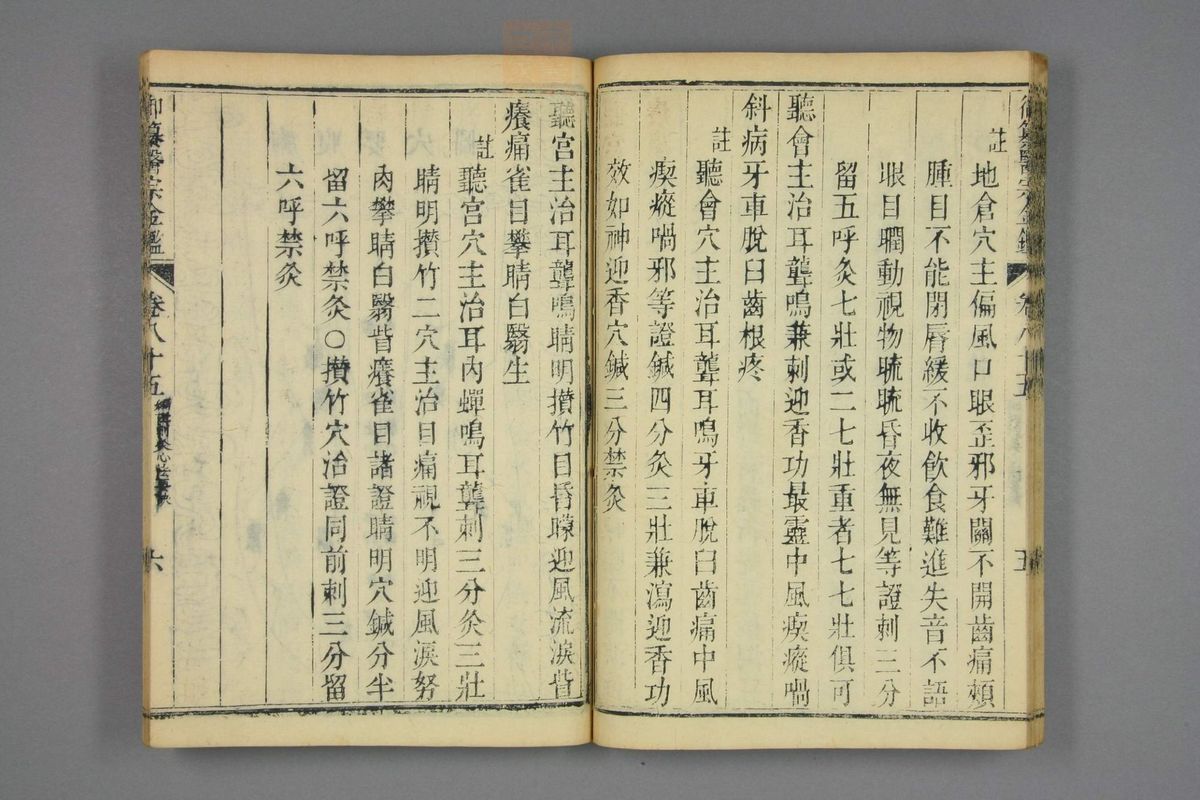 御纂醫宗金鑑
卷八十五
五
註
地倉穴主偏風口眼歪邪牙關不開齒痛頰
腫目不能閉唇緩不收飲食難進失音不語
眼目瞤動視物䀮䀮昏夜無見等證刺三分
留五呼灸七壯或二七壯重者七七壯俱可
聽會主治耳聾鳴兼刺迎香功最靈中風瘈瘲喎
斜病牙車脫臼齒根疼
註
聽會穴主治耳聾耳鳴牙車脫臼齒痛中風
瘈瘲喎邪等證鍼四分灸三壯兼瀉迎香功
效如神迎香穴鍼三分禁灸
聽宮主治耳聾鳴睛明攢竹目昏矇迎風流淚眥
癢痛雀目攀睛白翳生
註
聽宮穴主治耳內蟬鳴耳聾刺三分灸三壯
睛明攢竹二穴主治目痛視不明迎風淚努
肉攀睛白翳眥癢雀目諸證睛明穴鍼分半
留六呼禁灸○攢竹穴治證同前刺三分留
六呼禁灸
御纂醫宗金鑑
卷八十五
六